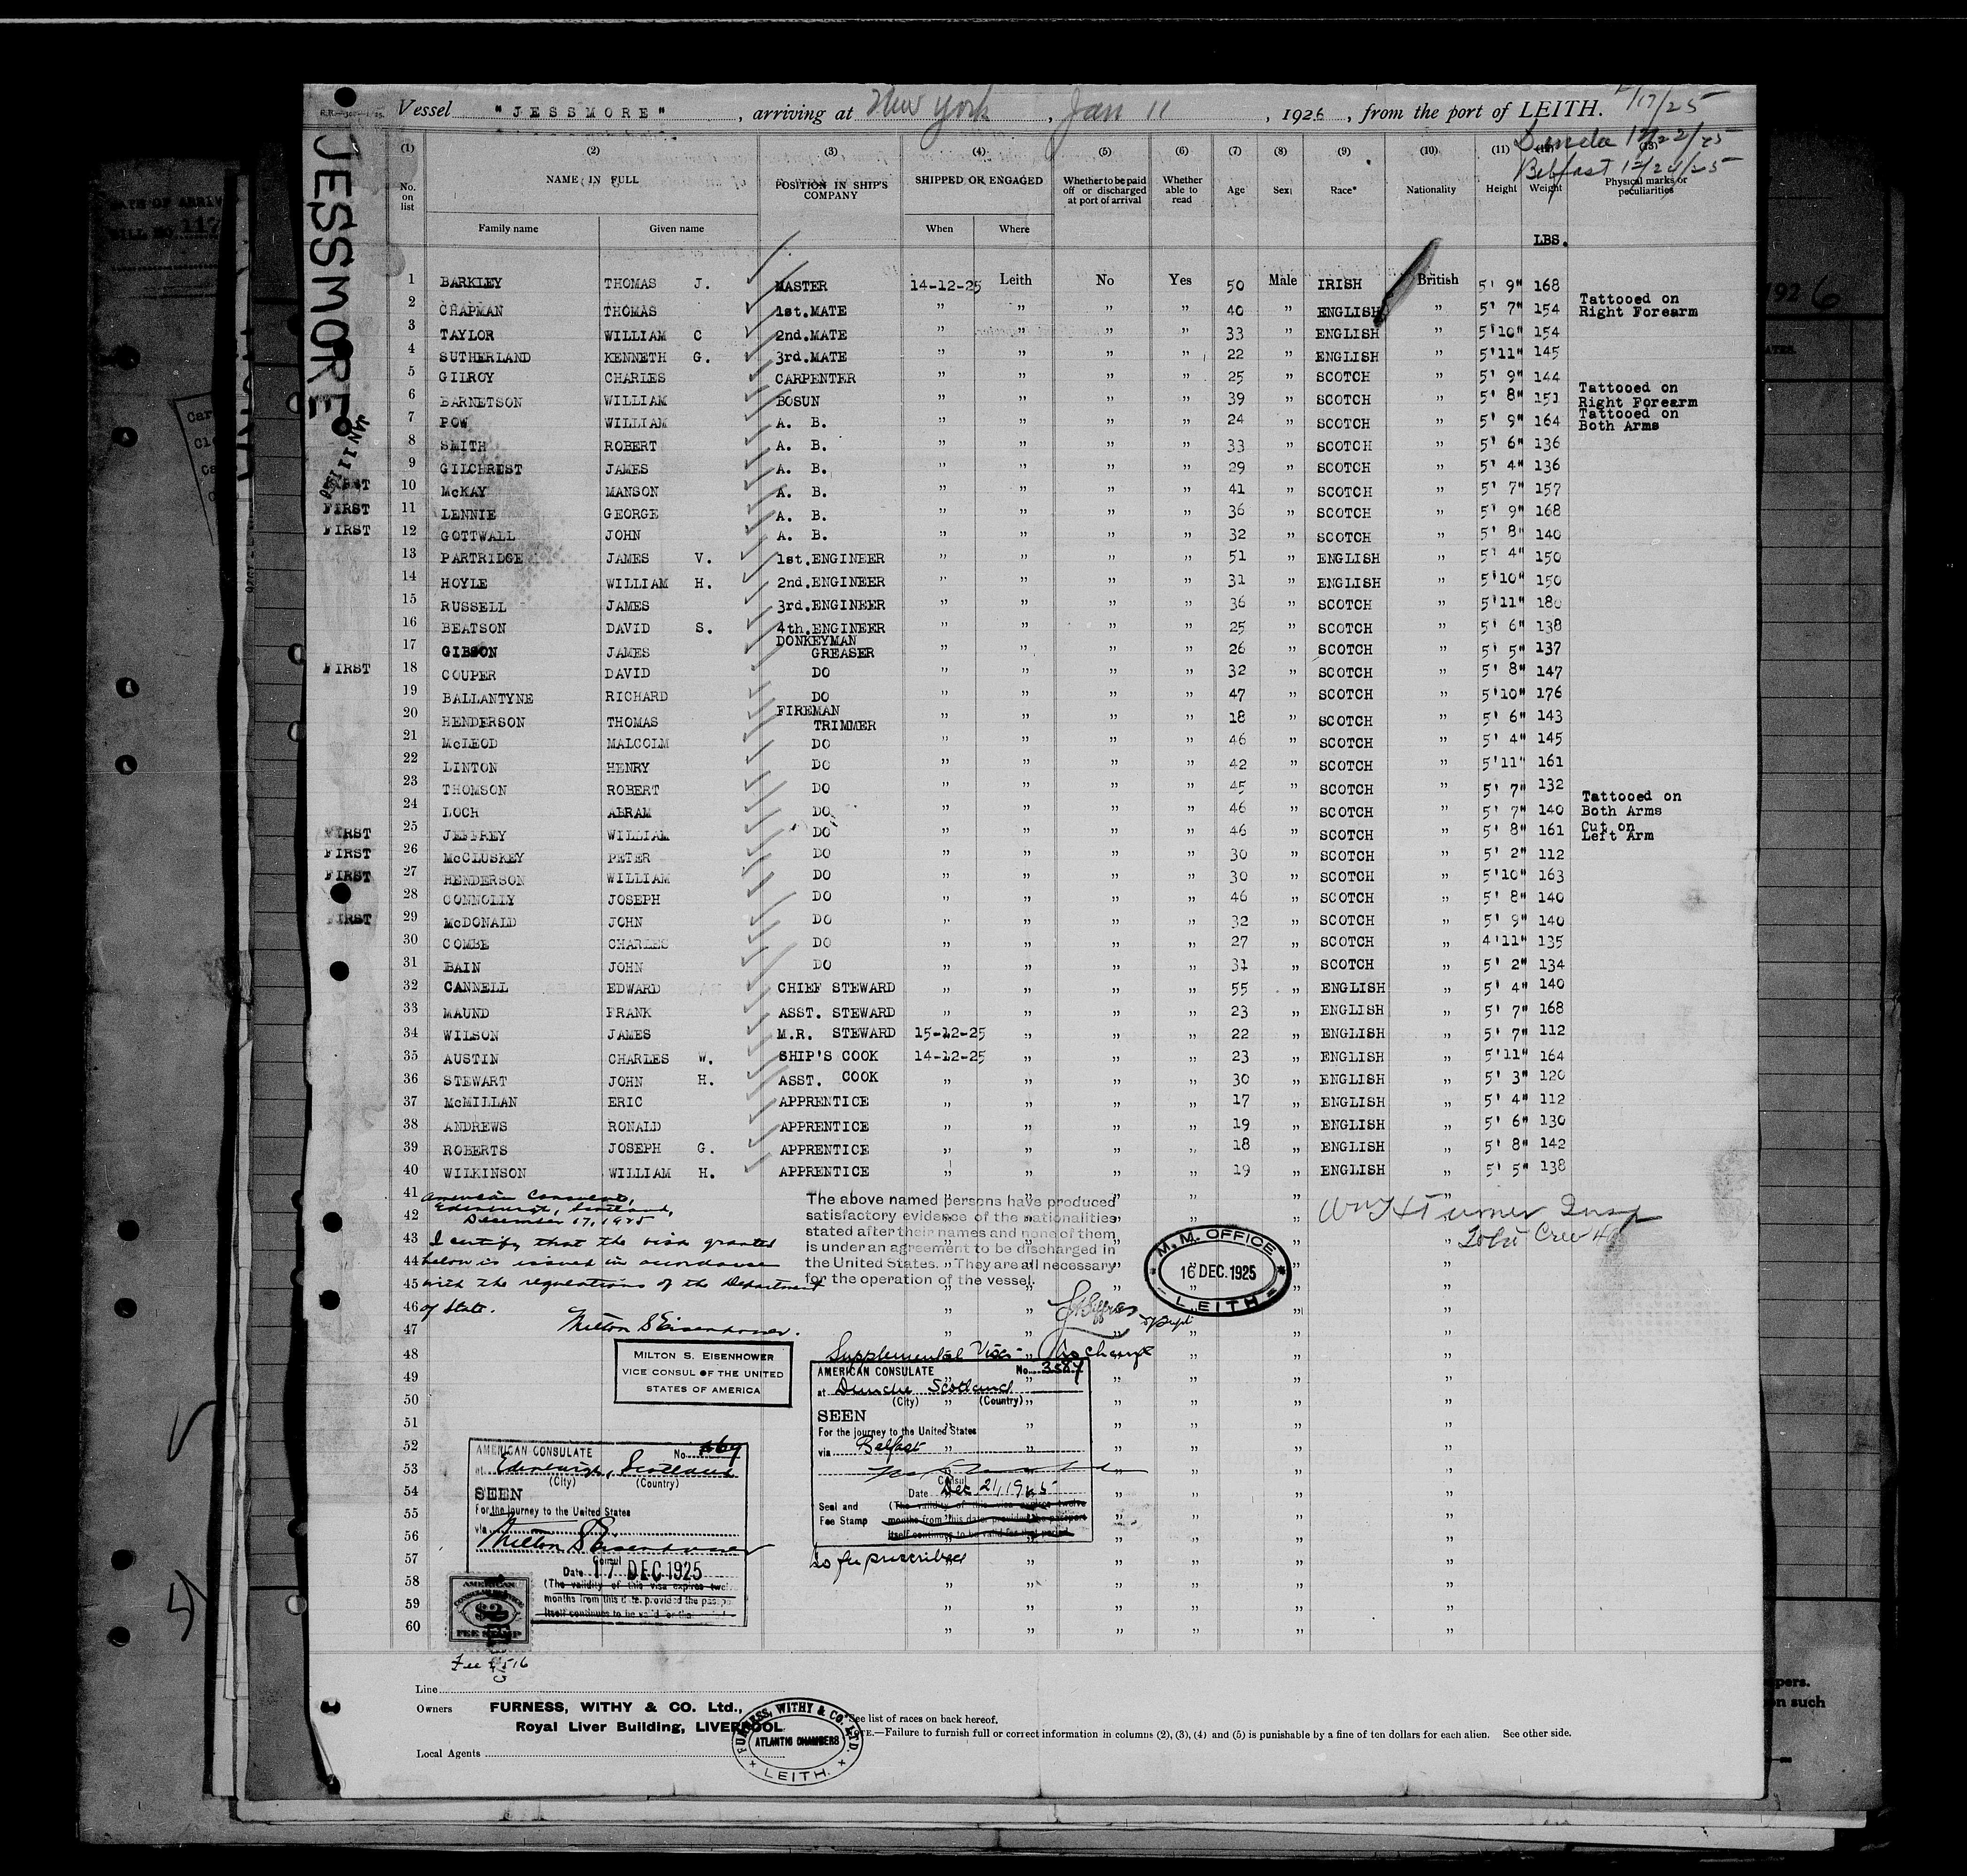 Vessel "JESSMORE", arriving at New York, Jan 11, 1926, from the port of LEITH. 12/17/25
Dundee 12/22/25
Belfast 12/24/25
JESSMORE
(1) (2) (3) (4) (5) (6) (7) (8) (9) (10) (11) (12) (13)
No. on list NAME IN FULL POSITION IN SHIP'S COMPANY SHIPPED OR ENGAGED Whether to be paid off or discharged at port of arrival Whether able to read Age Sex Race* Nationality Height Weight Physical marks or peculiarities
Family name Given name When Where LBS.
1 BARKLEY THOMAS J. MASTER 14-12-25 Leith No Yes 50 Male IRISH British 5' 9" 168
2 CHAPMAN THOMAS 1st.MATE " " " " 40 " ENGLISH " 5' 7" 154 Tattooed on Right Forearm
3 TAYLOR WILLIAM C 2nd.MATE " " " " 33 " ENGLISH " 5'10" 154
4 SUTHERLAND KENNETH G. 3rd.MATE " " " " 22 " ENGLISH " 5'11" 145
5 GILROY CHARLES CARPENTER " " " " 25 " SCOTCH " 5' 9" 144
6 BARNETSON WILLIAM BOSUN " " " " 39 " SCOTCH " 5' 8" 151 Tattooed on Right Forearm
7 POW WILLIAM A. B. " " " " 24 " SCOTCH " 5' 9" 164 Tattooed on Both Arms
8 SMITH ROBERT A. B. " " " " 33 " SCOTCH " 5' 6" 136
9 GILCHRIST JAMES A. B. " " " " 29 " SCOTCH " 5' 4" 136
FIRST 10 McKAY MANSON A. B. " " " " 41 " SCOTCH " 5' 7" 157
FIRST 11 LENNIE GEORGE A. B. " " " " 36 " SCOTCH " 5' 9" 168
FIRST 12 GOTTWALL JOHN A. B. " " " " 32 " SCOTCH " 5' 8" 140
13 PARTRIDGE JAMES V. 1st.ENGINEER " " " " 51 " ENGLISH " 5' 4" 150
14 HOYLE WILLIAM H. 2nd.ENGINEER " " " " 31 " ENGLISH " 5'10" 150
15 RUSSELL JAMES 3rd.ENGINEER " " " " 36 " SCOTCH " 5'11" 180
16 BEATSON DAVID S. 4th.ENGINEER " " " " 25 " SCOTCH " 5' 6" 138
17 GIBSON JAMES DONKEYMAN GREASER " " " " 26 " SCOTCH " 5' 5" 137
FIRST 18 COUPER DAVID DO " " " " 32 " SCOTCH " 5' 8" 147
19 BALLANTYNE RICHARD DO " " " " 47 " SCOTCH " 5'10" 176
20 HENDERSON THOMAS FIREMAN TRIMMER " " " " 18 " SCOTCH " 5' 6" 143
21 McLEOD MALCOLM DO " " " " 46 " SCOTCH " 5' 4" 145
22 LINTON HENRY DO " " " " 42 " SCOTCH " 5'11" 161
23 THOMSON ROBERT DO " " " " 45 " SCOTCH " 5' 7" 132
24 LOCH ABRAM DO " " " " 46 " SCOTCH " 5' 7" 140 Tattooed on Both Arms
FIRST 25 JEFFREY WILLIAM DO " " " " 46 " SCOTCH " 5' 8" 161 Cut on Left Arm
FIRST 26 McCLUSKEY PETER DO " " " " 30 " SCOTCH " 5' 2" 112
FIRST 27 HENDERSON WILLIAM DO " " " " 30 " SCOTCH " 5'10" 163
28 CONNOLLY JOSEPH DO " " " " 46 " SCOTCH " 5' 8" 140
FIRST 29 McDONALD JOHN DO " " " " 32 " SCOTCH " 5' 9" 140
30 COMBE CHARLES DO " " " " 27 " SCOTCH " 4'11" 135
31 BAIN JOHN DO " " " " 31 " SCOTCH " 5' 2" 134
32 CANNELL EDWARD CHIEF STEWARD " " " " 55 " ENGLISH " 5' 4" 140
33 MAUND FRANK ASST. STEWARD " " " " 23 " ENGLISH " 5' 7" 168
34 WILSON JAMES M.R. STEWARD 15-12-25 " " " 22 " ENGLISH " 5' 7" 112
35 AUSTIN CHARLES W. SHIP'S COOK 14-12-25 " " " 23 " ENGLISH " 5'11" 164
36 STEWART JOHN H. ASST. COOK " " " " 30 " ENGLISH " 5' 3" 120
37 McMILLAN ERIC APPRENTICE " " " " 17 " ENGLISH " 5' 4" 112
38 ANDREWS RONALD APPRENTICE " " " " 19 " ENGLISH " 5' 6" 130
39 ROBERTS JOSEPH G. APPRENTICE " " " " 18 " ENGLISH " 5' 8" 142
40 WILKINSON WILLIAM H. APPRENTICE " " " " 19 " ENGLISH " 5' 5" 138
41
42
43
44
45
46
47
48
49
50
51
52
53
54
55
56
57
58
59
60
American Consulate,
Edinburgh, Scotland,
December 17, 1925
I certify that the visa granted
below is issued in accordance
with the regulations of the Department
of State.
Milton S Eisenhower.
MILTON S. EISENHOWER
VICE CONSUL OF THE UNITED
STATES OF AMERICA
The above named persons have produced
satisfactory evidence of the nationalities
stated after their names and none of them
is under an agreement to be discharged in
the United States. They are all necessary
for the operation of the vessel.
M. M. OFFICE
16 DEC. 1925
LEITH
Wm H Turner Insp
Total Crew 40
Supplemental Visa - No charge
AMERICAN CONSULATE No. 3587
at Dundee Scotland
(City) (Country)
SEEN
For the journey to the United States
via Belfast
Consul
Date Dec 21, 1925
Seal and Fee Stamp
(The validity of this visa expires twelve
months from this date provided the passport
itself continues to be valid for that period.
No fee prescribed
AMERICAN CONSULATE No.
at Edinburgh, Scotland
(City) (Country)
SEEN
For the journey to the United States
via
Milton S Eisenhower
Consul
Date 17 DEC 1925
(The validity of this visa expires
months from this date provided the
itself continues to be valid for
AMERICAN
CONSULAR SERVICE
$2
FEE STAMP
Line
Owners FURNESS, WITHY & CO. Ltd.,
Royal Liver Building, LIVERPOOL
Local Agents
FURNESS, WITHY & CO. LTD.
ATLANTIC CHAMBERS
LEITH.
*See list of races on back hereof.
NOTE.—Failure to furnish full or correct information in columns (2), (3), (4) and (5) is punishable by a fine of ten dollars for each alien. See other side.